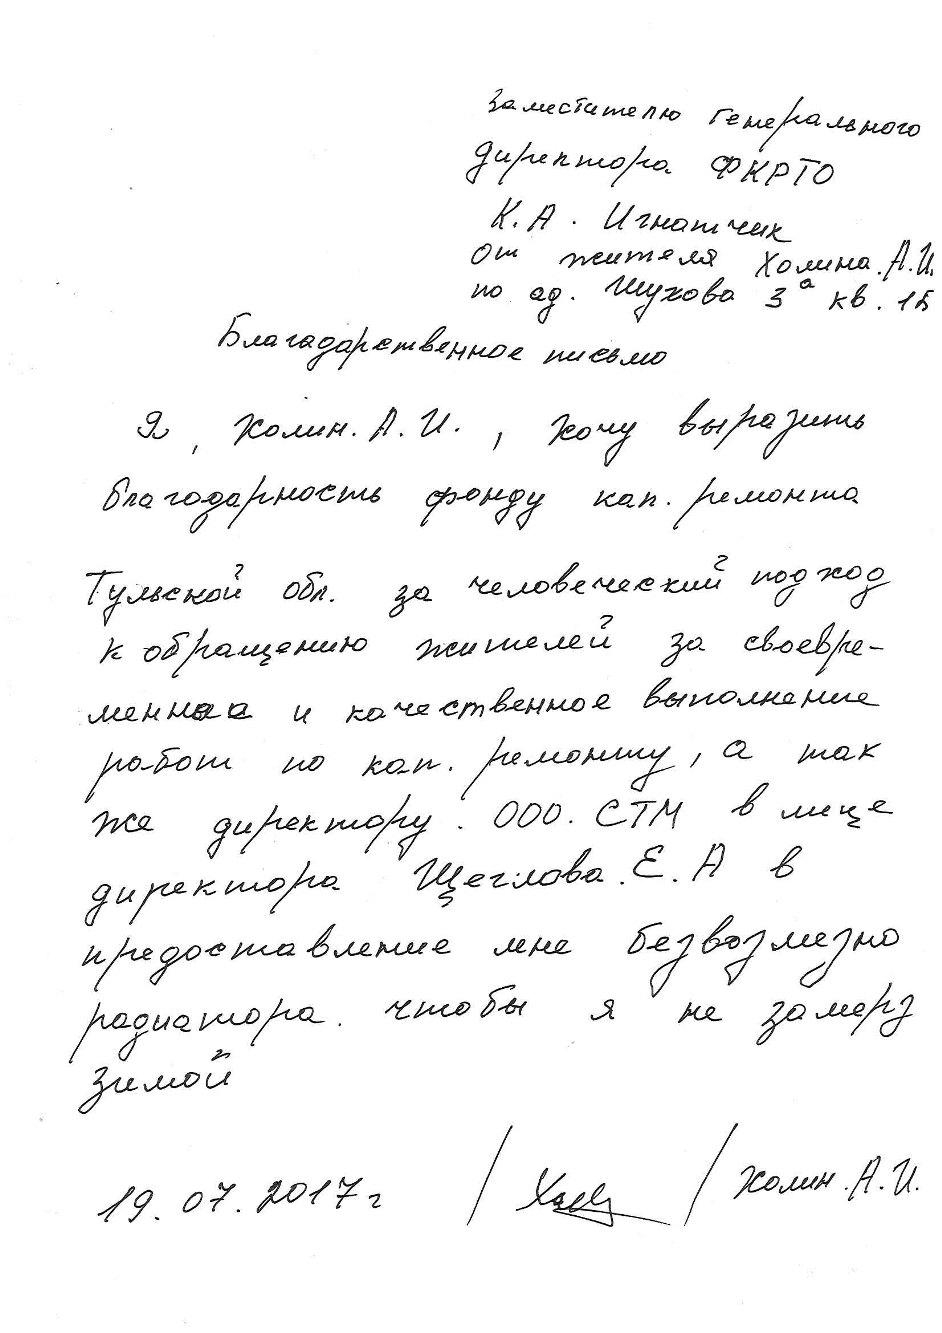 Заместителю генерального
директора ФКРТО
К.А. Игнатчик
от жителя Холина.А.И.
по ад. Шухова 3а кв. 1Б
Благодарственное письмо
Я, Холин.А.И., хочу выразить
благодарность фонду кап. ремонта
Тульской обл. за человеческий подход
к обращению жителей за своевре-
менная и качественное выполнение
работ по кап. ремонту, а так
же директору. ООО. СТМ в лице
директора Щеглова.Е.А в
предоставление мне безвозмезно
радиатора. чтобы я не замерз
зимой
19.07.2017г / / Холин.А.И.